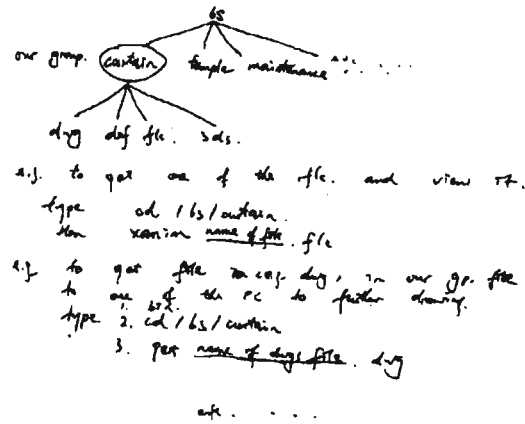 bs
our group. curtain temple maintenance etc. . . . .
dwg dxf flc. 3ds.
e.g. to get one of the flc. and view it.
type cd /bs/curtain.
then xanim name of file .flc
e.g. to get file in e.g. dwg, in our gp. file
to one of the PC to further drawing.
type 1. bs
2. cd /bs/curtain
3. get name of dwg file . dwg
etc. . . . .